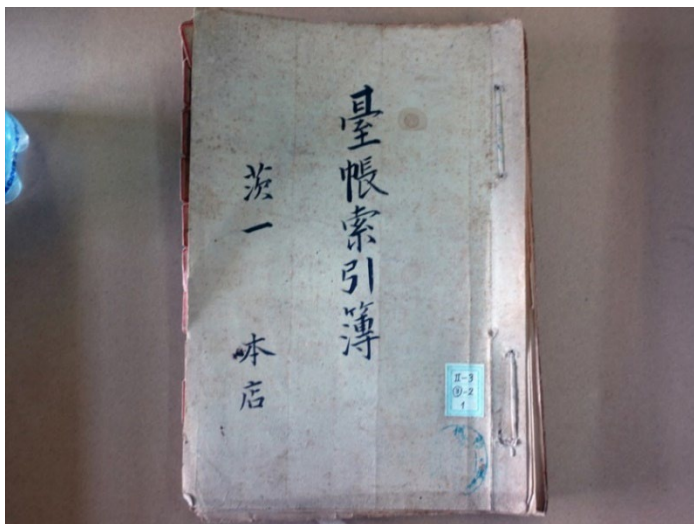 臺帳索引簿
茨一 本店
II-3
③-2
1